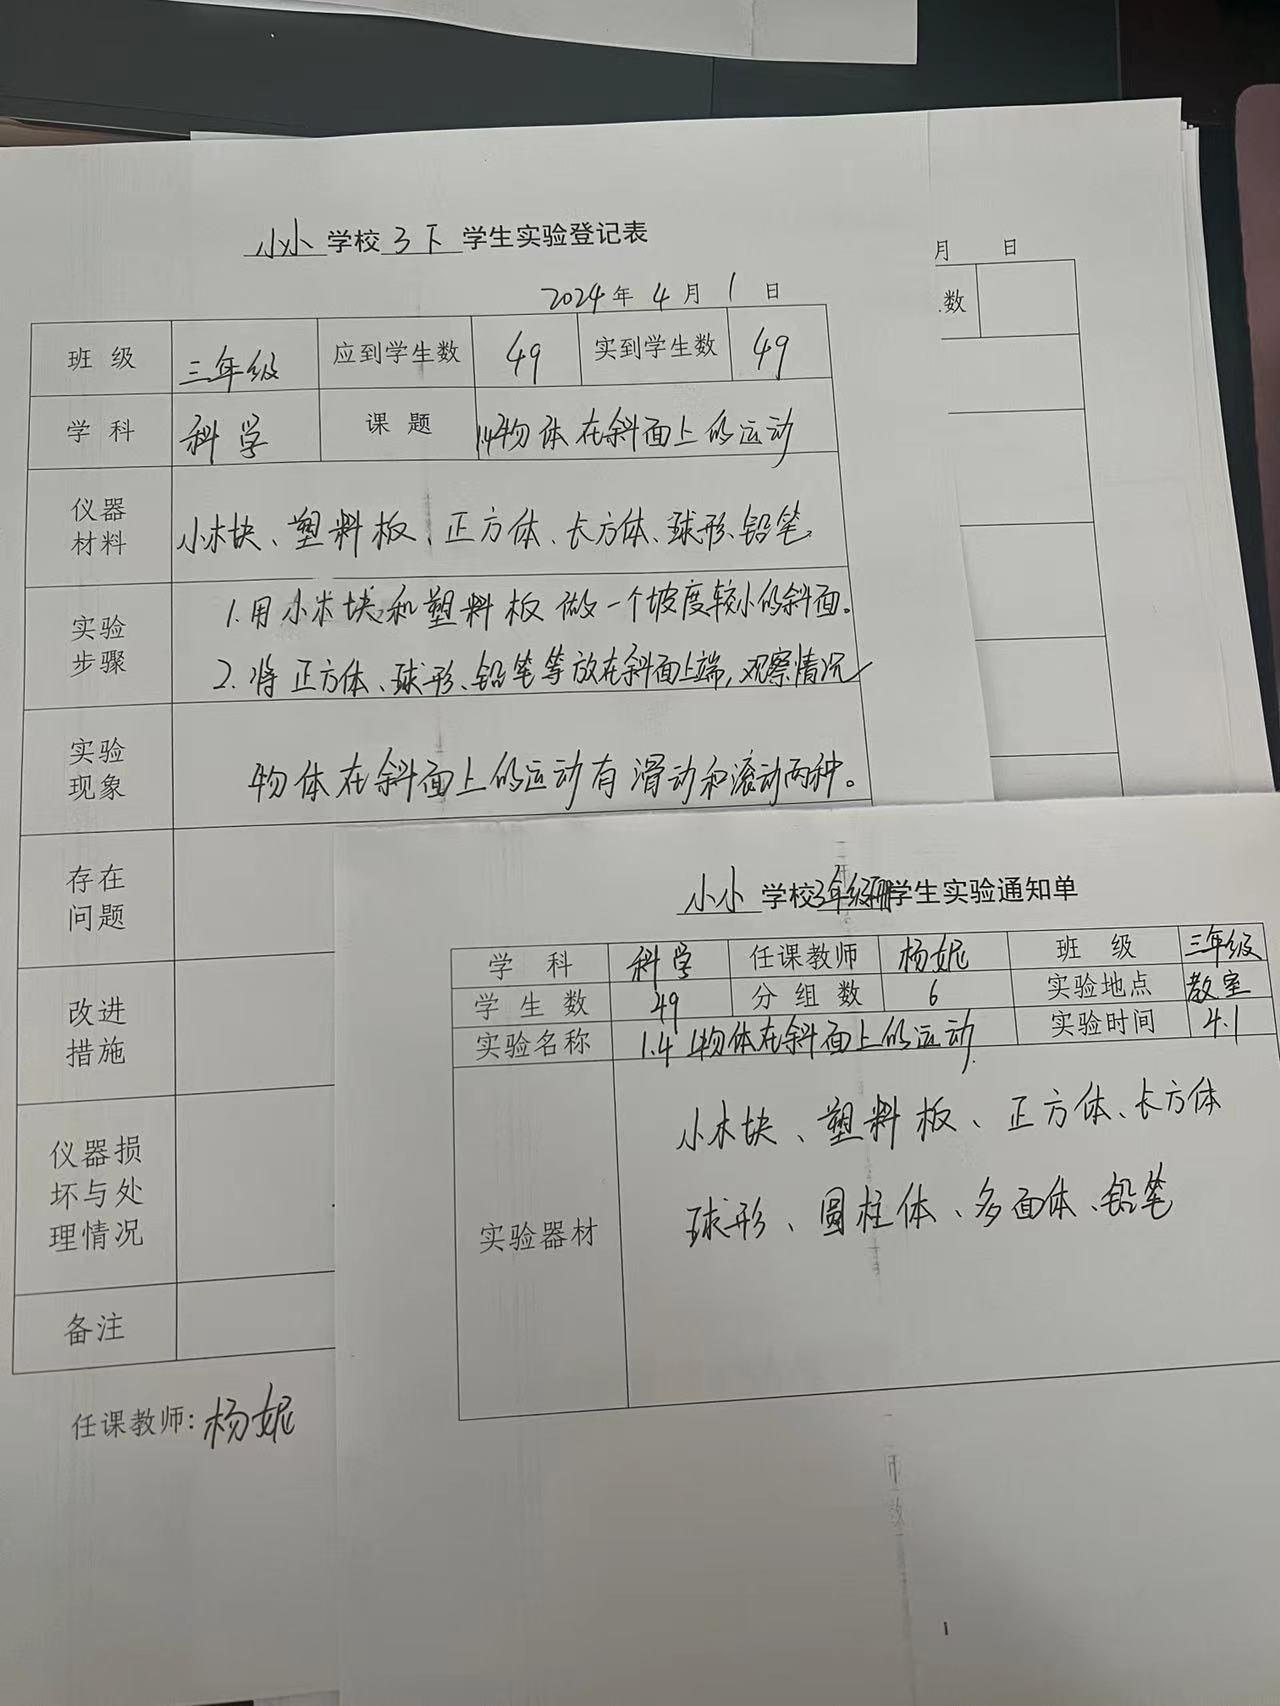 小小学校3下学生实验登记表
2024年4月1日
班级 三年级 应到学生数 49 实到学生数 49
学科 科学 课题 1.4物体在斜面上的运动
仪器材料 小木块、塑料板、正方体、长方体、球形、铅笔
实验步骤 1.用小木块和塑料板做一个坡度较小的斜面。
2.将正方体、球形、铅笔等放在斜面上端,观察情况
实验现象 物体在斜面上的运动有滑动和滚动两种。
存在问题
改进措施
仪器损坏与处理情况
备注
任课教师:杨妮
月 日
数
小小学校3年级下册学生实验通知单
学科 科学 任课教师 杨妮 班级 三年级
学生数 49 分组数 6 实验地点 教室
实验名称 1.4物体在斜面上的运动 实验时间 4.1
实验器材 小木块、塑料板、正方体、长方体
球形、圆柱体、多面体、铅笔